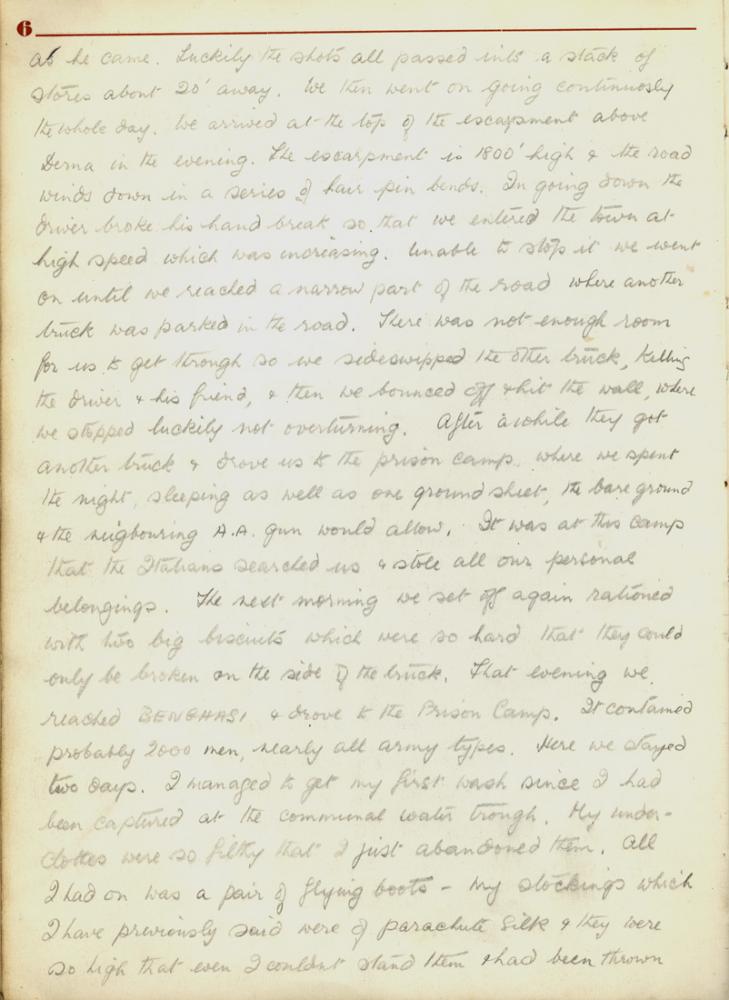 6
as he came. Luckily the shots all passed into a stack of
stores about 20' away. We then went on going continuously
the whole day. We arrived at the top of the escarpment above
Derna in the evening. The escarpment is 1800' high & the road
winds down in a series of hair pin bends. In going down the
driver broke his hand break so that we entered the town at
high speed which was increasing. Unable to stop it we went
on until we reached a narrow part of the road where another
truck was parked in the road. There was not enough room
for us to get through so we sideswipped the other truck, killing
the driver & his friend, & then we bounced off & hit the wall, where
we stopped luckily not overturning. After a while they got
another truck & drove us to the prison camp, where we spent
the night, sleeping as well as one ground sheet, the bare ground
& the neigbouring A.A. gun would allow. It was at this camp
that the Italians searched us & stole all our personal
belongings. The next morning we set off again rationed
with two big biscuits which were so hard that they could
only be broken on the side of the truck. That evening we
reached BENGHASI & drove to the Prison Camp. It contained
probably 2000 men, nearly all army types. Here we stayed
two days. I managed to get my first wash since I had
been captured at the communal water trough. My under-
clothes were so filthy that I just abandoned them. All
I had on was a pair of flying boots - my stockings which
I have previously said were of parachute silk & they were
so high that even I couldnt stand them & had been thrown